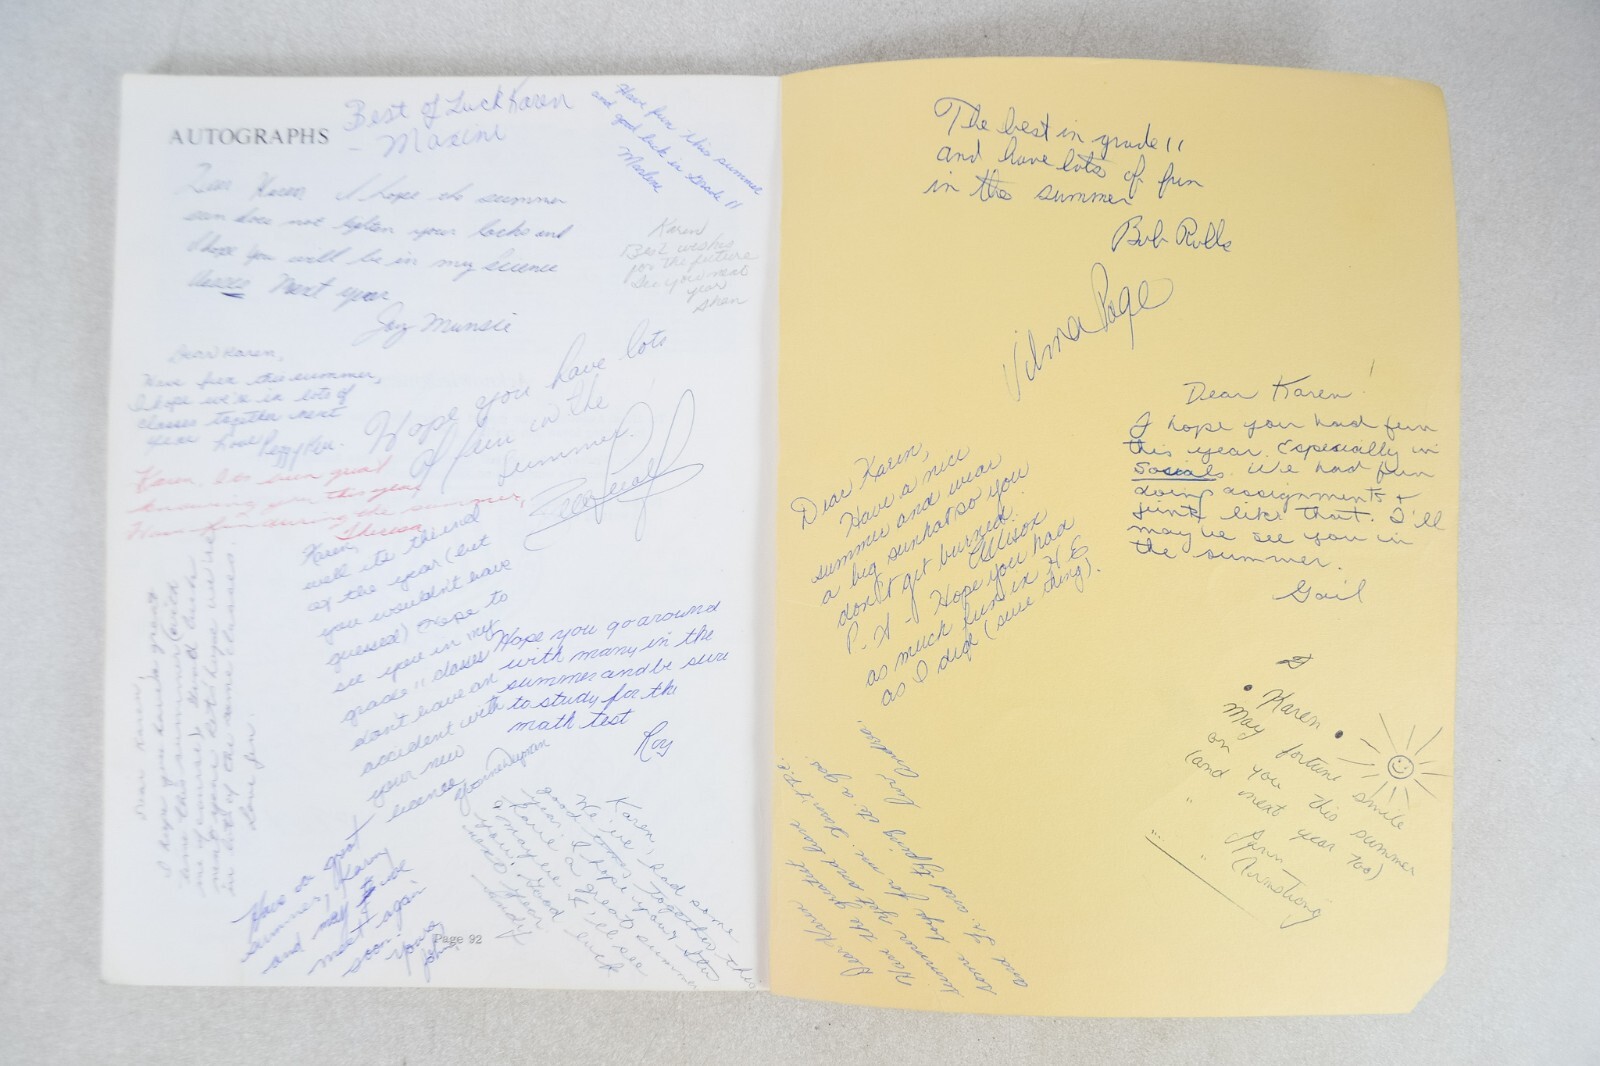 AUTOGRAPHS
Best of Luck Karen
- Maxine
Have fun this summer
and good luck in grade 11
Marlene
Dear Karen, I hope the summer
sun does not lighten your locks and
I hope you will be in my Science
classes next year
Joy Munsie
Karen
Best wishes
for the future
See you next
year
Dear Karen,
Have fun this summer,
I hope we're in lots of
classes together next
year love Peggy
Hope you have lots
of fun in the
summer.
Karen, Its been great
knowing you this year
Have fun during the summer,
Theresa
Karen,
well its the end
of the year (bet
you wouldn't have
guessed) Hope to
see you in my
grade 11 classes
don't have an
accident with
your new
licence
Yvonne
Hope you go around
with many in the
summer and be sure
to study for the
math test
Roy
Dear Karen,
I hope you have a great
time this summer (with
me of course),
next year let's hope we're
in lots of the same classes.
Love Jen.
Have a great
summer, Karen
and may
meet again
soon.
Yours
John
Karen,
We've had some
good times together this
year. I hope you
have a great summer
& maybe I'll see
you. Good luck
next year.
Page 92
The best in grade 11
and have lots of fun
in the summer
Bob Rolls
Vilma Page
Dear Karen!
I hope you had fun
this year. Especially in
Socials. We had fun
doing assignments &
junk like that. I'll
maybe see you in
the summer.
Gail
Dear Karen,
Have a nice
summer and wear
a big sunhat so you
don't get burned.
Allison
P.S. - Hope you had
as much fun in H.E
as I did (sure thing).
Dear Karen
Have the greatest
summer yet and have
some boys for me.
and typing it's a gas
Karen
May fortune smile
on you this summer
(and next year too)
Ann
(Armstrong)